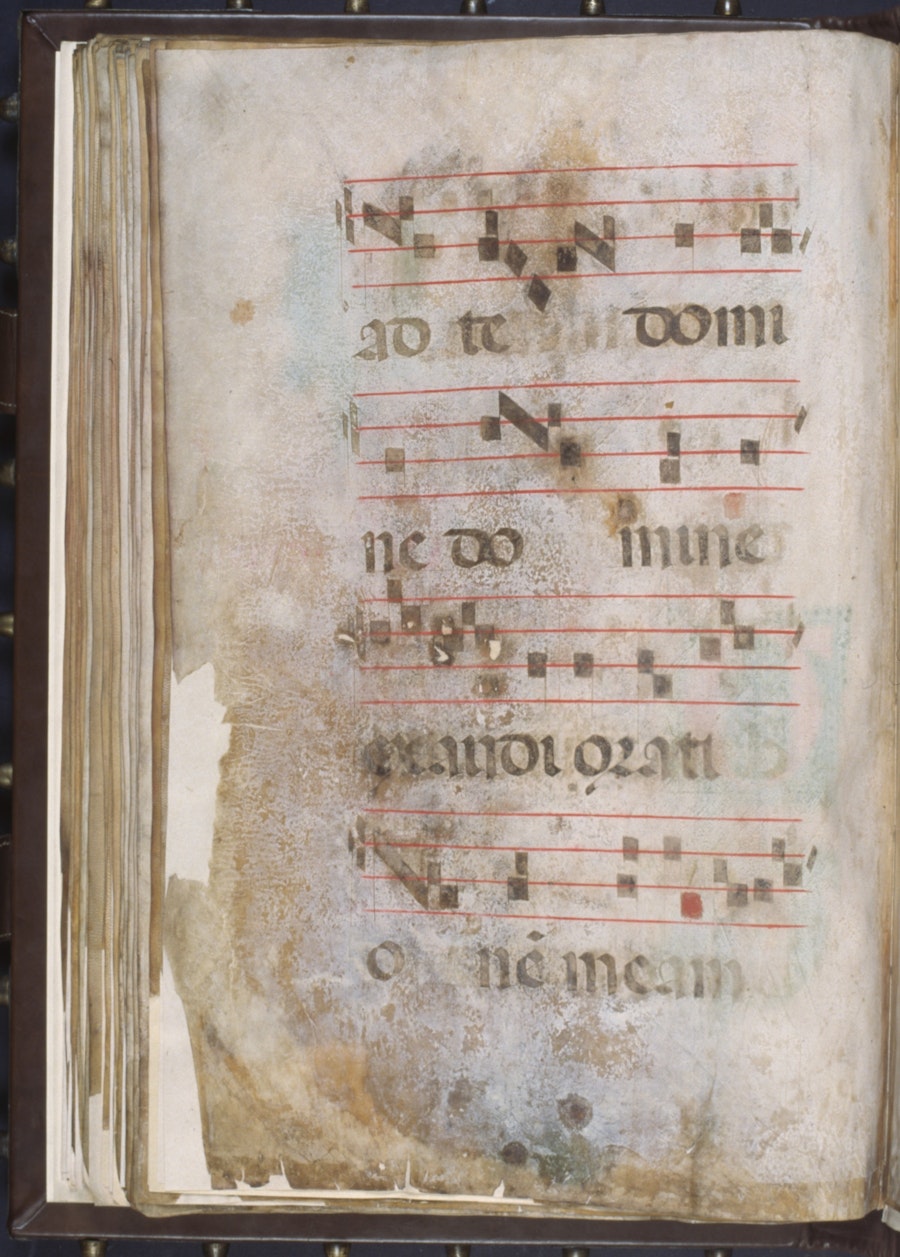 ad te domi
ne domine
exaudi orati
o nē meam